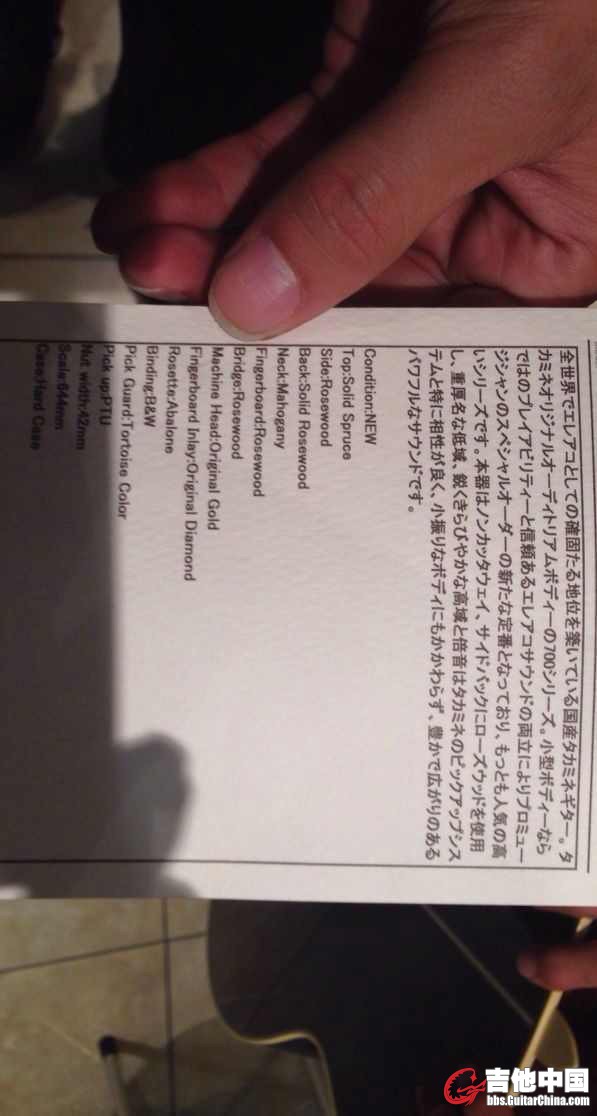 全世界でエレアコとしての確固たる地位を築いている国産タカミネギター。タ
カミネオリジナルオーディトリアムボディーの700シリーズ。小型ボディーなら
ではのプレイアビリティーと信頼あるエレアコサウンドの両立によりプロミュー
ジシャンのスペシャルオーダーの新たな定番となっており、もっとも人気の高
いシリーズです。本器はノンカッタウェイ、サイドバックにローズウッドを使用
し、重厚名な低域、鋭くきらびやかな高域と倍音はタカミネのピックアップシス
テムと特に相性が良く、小振りなボディにもかかわらず、豊かで広がりのある
パワフルなサウンドです。
Condition:NEW
Top:Solid Spruce
Side:Rosewood
Back:Solid Rosewood
Neck:Mahogany
Fingerboard:Rosewood
Bridge:Rosewood
Machine Head:Original Gold
Fingerboard Inlay:Original Diamond
Rosette:Abalone
Binding:B&W
Pick Guard:Tortoise Color
Pick up:PTU
Nut width:42mm
Scale:644mm
Case:Hard Case
吉他中国
bbs.GuitarChina.com